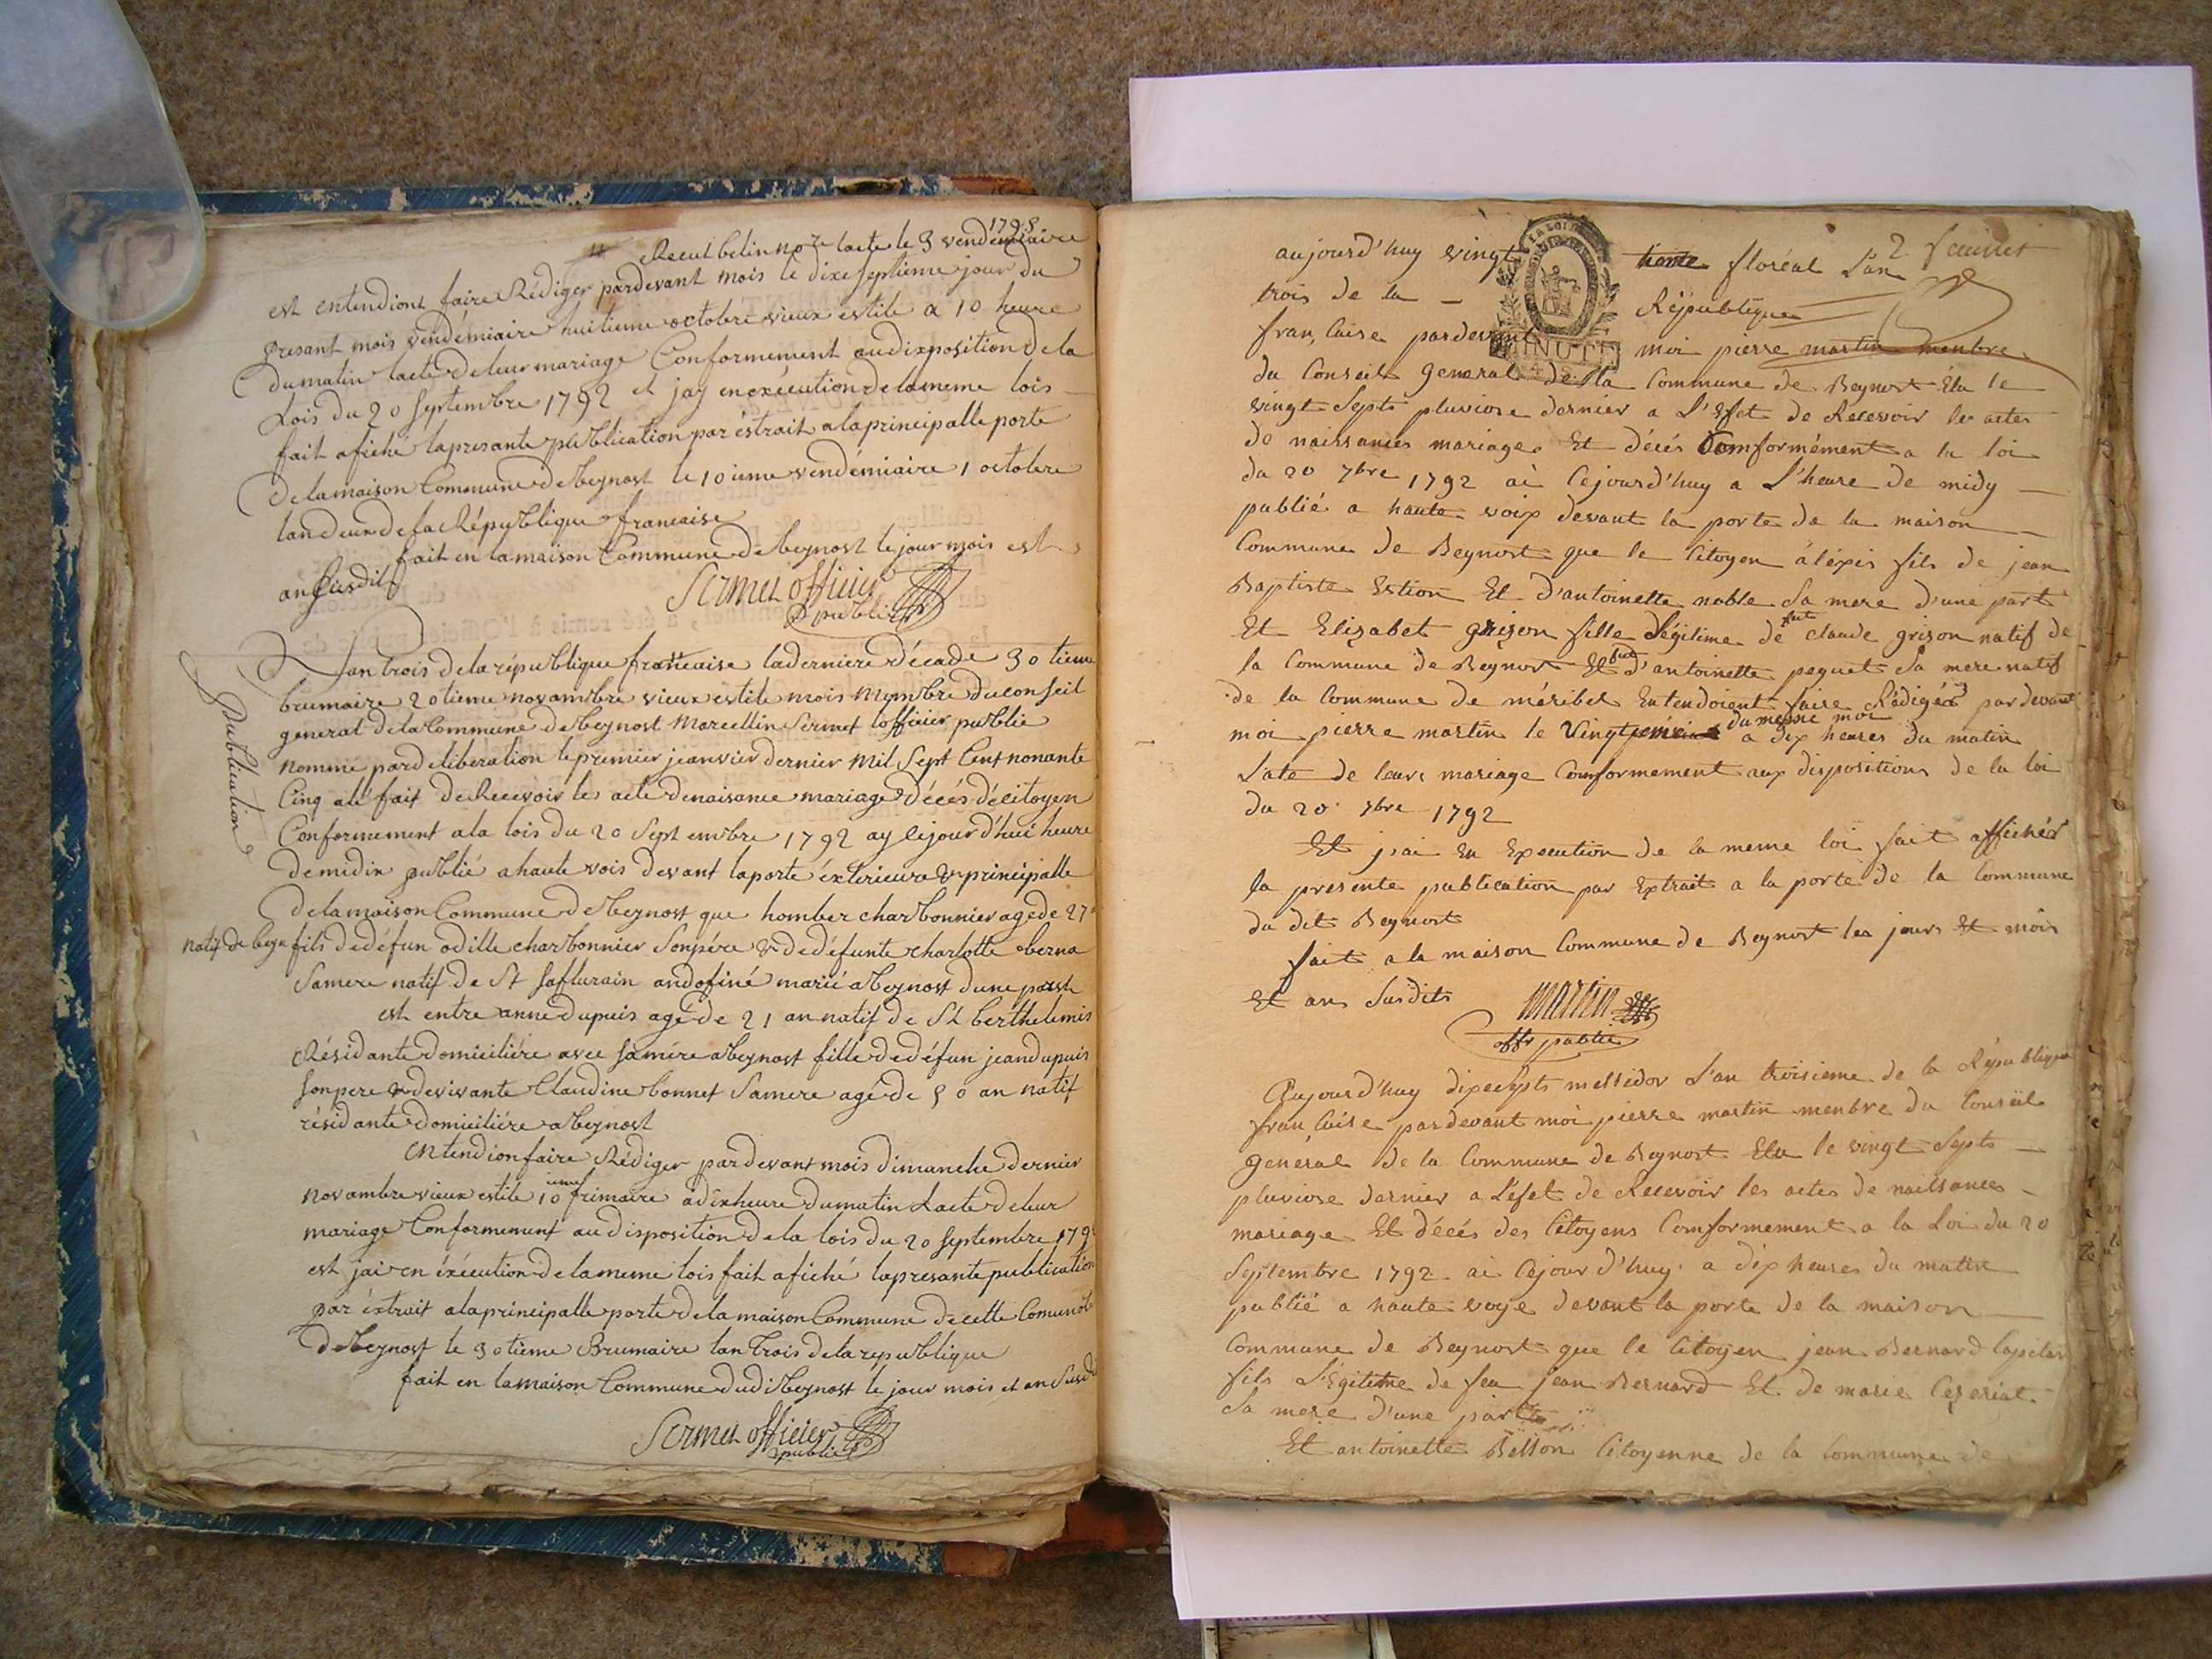 1795
Recut belin no.re lacte le 3 vendémiaire
est entendiont faire Rédiger pardevant mois le dixe septieme jour du
presant mois vendémiaire huitieme octobre vieux estile a 10 heure
du matin lacte de leur mariage Conformement au dixposition de la
Lois du 20 septembre 1792 et jay en exécution de la meme lois
fait afiché la presante publication par éstrait a la principalle porte
de la maison Commune de beynost le 10 ieme vendémiaire 1 octobre
lan deux de la République francaise
fait en la maison Commune de beynost le jour mois est
an susdit
Sermet officier
public
Publication
Lan trois de la république francaise la derniere décade 30 tieme
brumaire 20 tieme novambre vieux estile mois membre du conseil
general de la Commune de beynost Marcellin Sermet officier public
nomme par deliberation le premier jeanvier dernier mil sept Cent nonante
Cinq au fait de Recevoir les acte de naisance mariage décés de citoyen
Conformement a la lois du 20 Septembre 1792 ay cejourd'hui heure
de midix publié a haute vois devant la porte éxterieure & principalle
de la maison Commune de beynost que homber charbonnier agé de 27
natif de beyn fils de défun odille charbonnier son pére & de défunte charlotte berna
Samere natif de St saflurain andofiné marié a beynost dune parst
est entre anne dupuis agé de 21 an natif de St berthelemis
Résidante domiciliére avec samére a beynost fille de défun jean dupuis
son pere & de vivante Claudine bonnet Samere agé de 50 an natif
résidante domiciliére a beynost
entendion faire Rédiger par devant mois dimanche dernier
novambre vieux estile 10 ieme frimaire a dix heure du matin Lacte de leur
mariage Conformement au disposition de la lois du 20 septembre 179
est jai en éxécution de la meme lois fait afiché la presante publication
par éxtrait a la principalle porte de la maison Commune de cette Comune
de beynost le 30 tieme Brumaire lan trois de la republique
fait en la maison Commune dudi beynost le jour mois et an Susd
Sermet officier
public
2 feuillet
aujourd'huy vingt trente floréal L'an
trois de la République
fran,caise pardevant moi pierre martin menbre
MINUTE
du Conseil general de la Commune de Beynost Elu le
vingt Septs pluviose dernier a L'efet de Recevoir les actes
de naissances mariages Et décés Comformément a la loi
du 20 7bre 1792 ai Cejourd'huy a L'heure de midy
publié a haute voix devant la porte de la maison
Commune de Beynost que le Citoyen aléxis fils de jean
Baptiste Estion Et D'antoinette noble Sa mere d'une part
Et Elisabet grison fille Légitime de feut claude grison natif de
la Commune de Beynost Et feut d'antoinette peguet Sa mere natif
de la Commune de méribel Entendoient faire Rédiger pardevant
moi pierre martin le Vingt du meme moi a dix heures du matin
L'ate de leurs mariage Comformement aux dispositions de la loi
du 20 7bre 1792
Et j'ai En Execution de la meme loi fait affichér
la presente publication par Extrait a la porte de la Commune
du dit Beynost
fait a la maison Commune de Beynost les jours Et mois
Et ans Susdits martin
offr public
Aujourd'huy dixesepts messidor L'an troisieme de la République
fran,caise pardevant moi pierre martin menbre du Conseil
general de la Commune de Beynost Elu le vingt Septs
pluviose dernier a L'efet de Recevoir les actes de naissances
mariage Et décés des Citoyens Comformement a la Loi du 20
Septembre 1792 ai Cejour D'huy a dix heures du matin
publié a haute voye devant la porte de la maison
Commune de Beynost que le Citoyen jean Bernard
fils L'égitime de feu jean Bernard Et de marie Ceseriat
Sa mere D'une part
Et antoinette Bellon Citoyenne de la Commune de